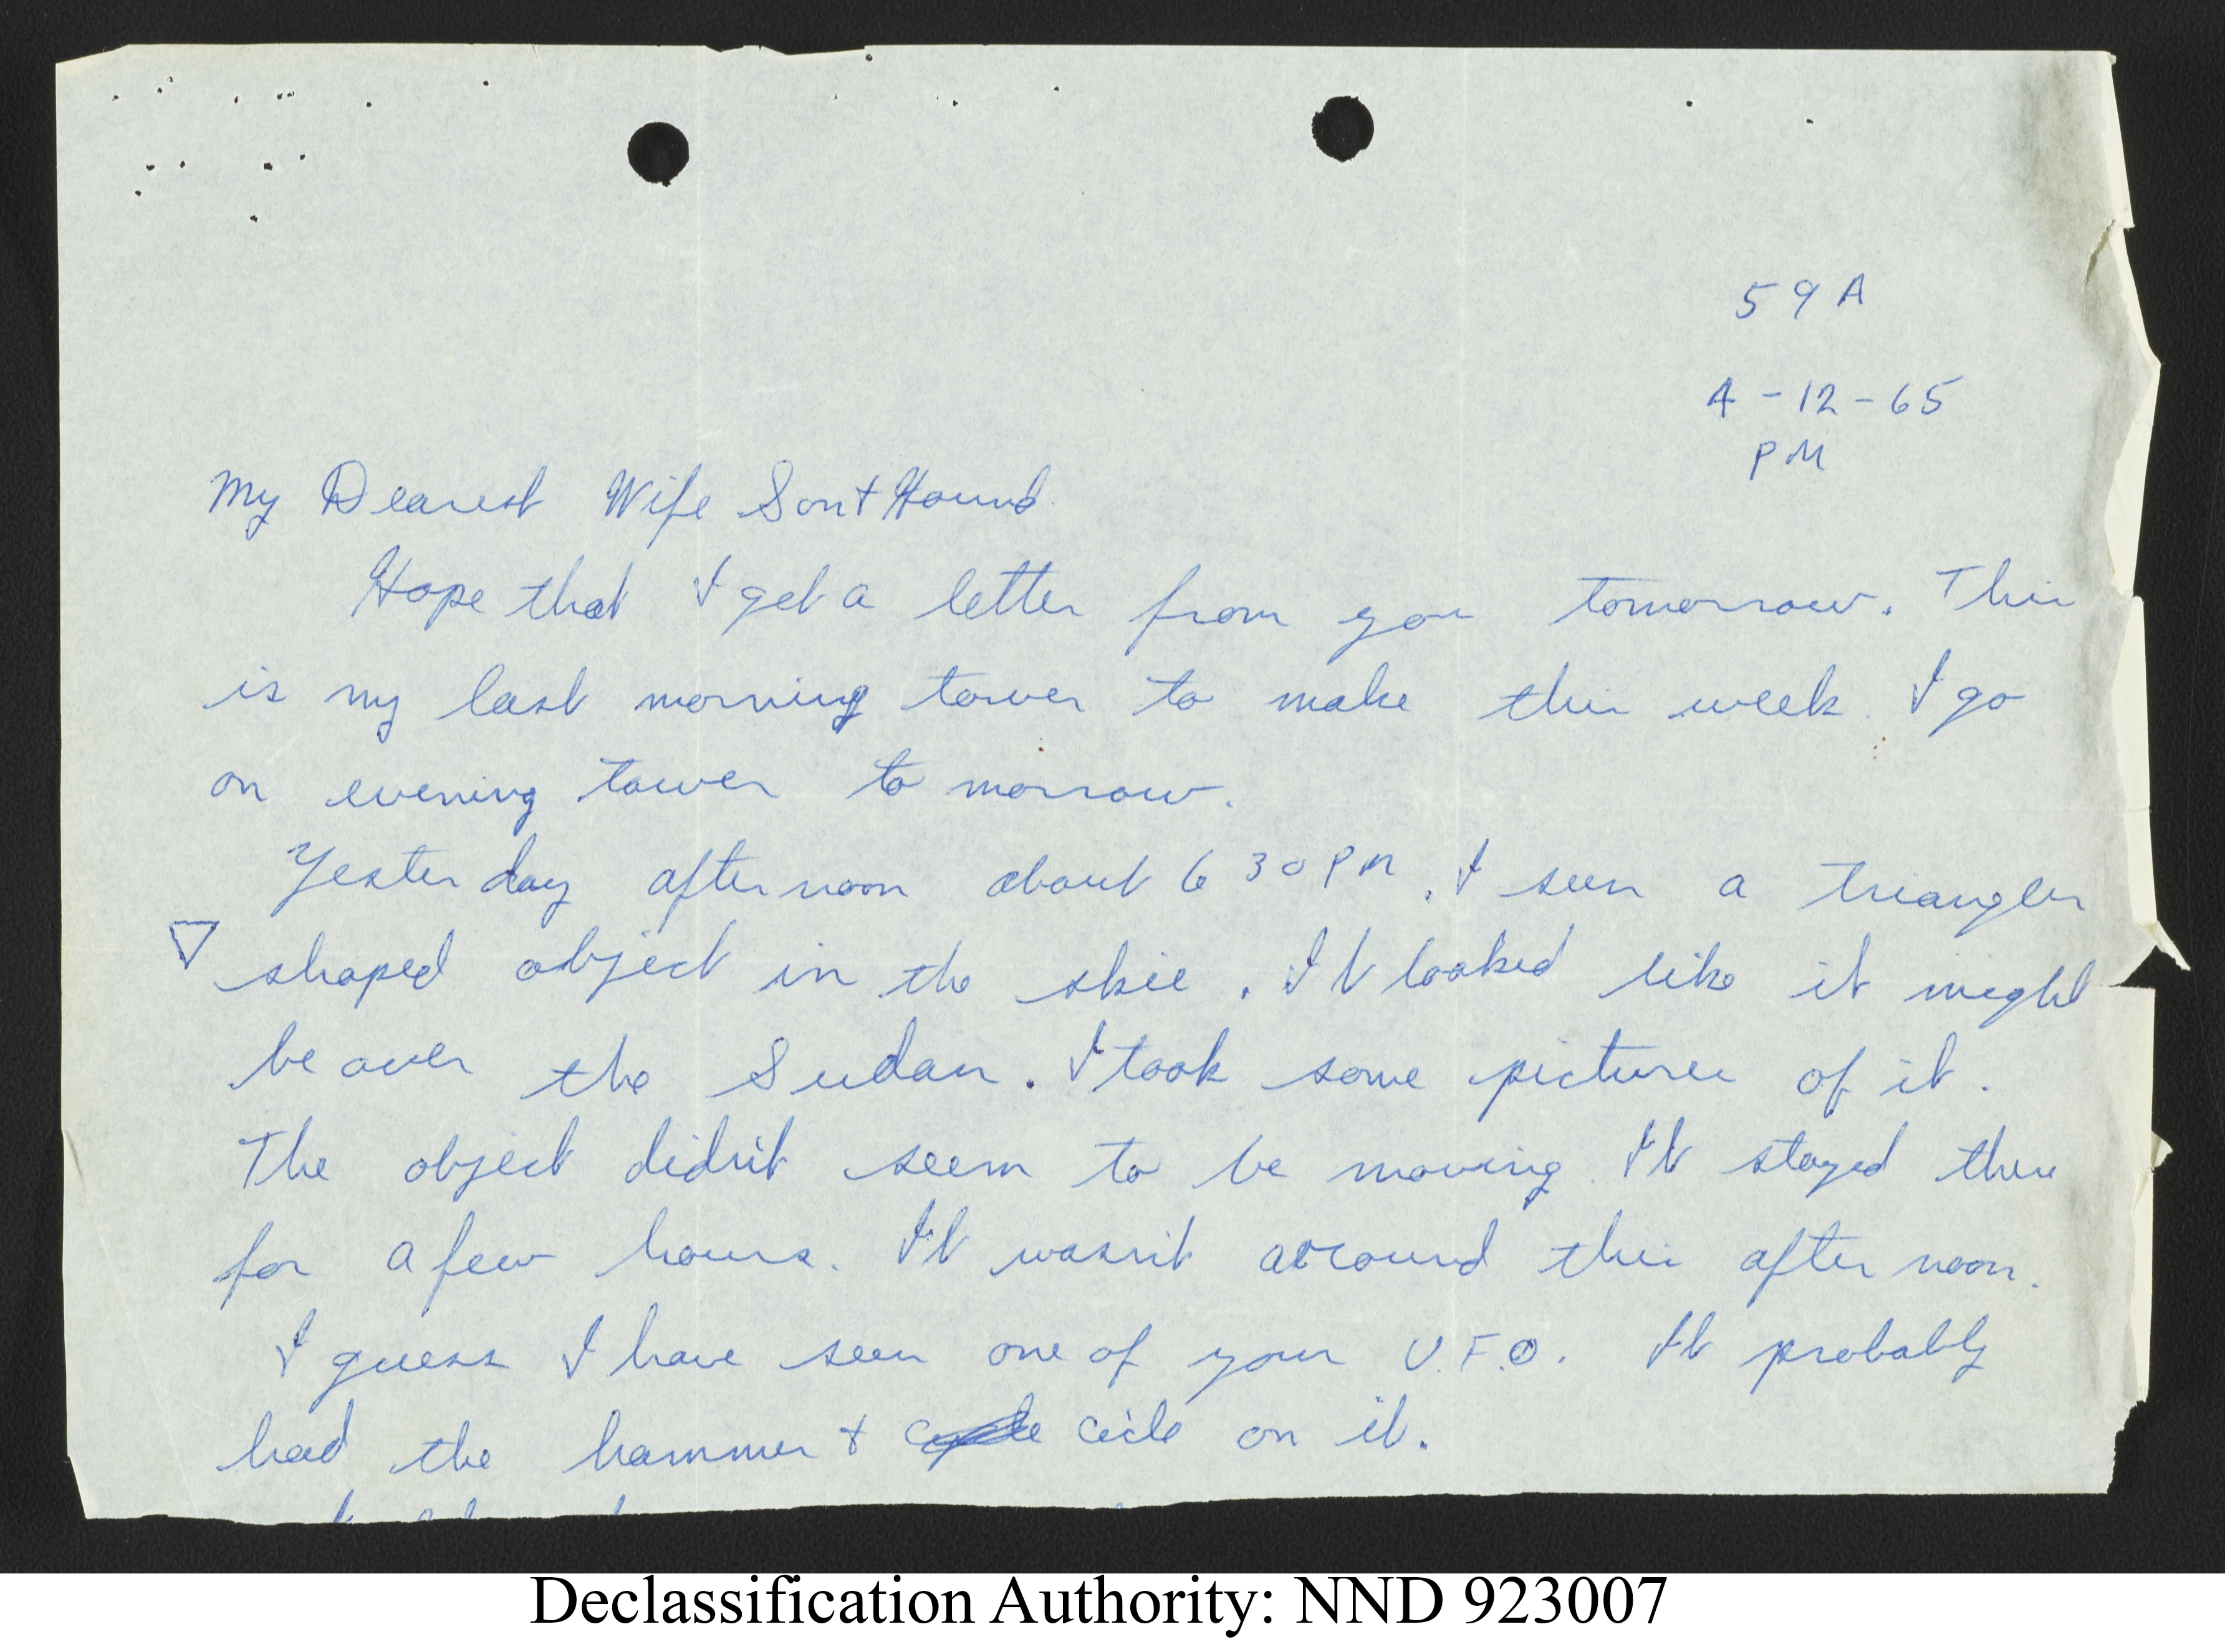 59A
4-12-65
PM
My Dearest Wife Son + Hound
Hope that I get a letter from you tomorrow. This
is my last morning tower to make this week. I go
on evening tower to morrow.
Yester day after noon about 6 30 PM. I seen a triangler
shaped object in the skie. It looked like it might
be over the Sudan. I took some pictures of it.
The object didn't seem to be moving. It stayed there
for a few hours. It wasn't around this after noon.
I guess I have seen one of your U.F.O. It probably
had the hammer + cicle on it.
Declassification Authority: NND 923007